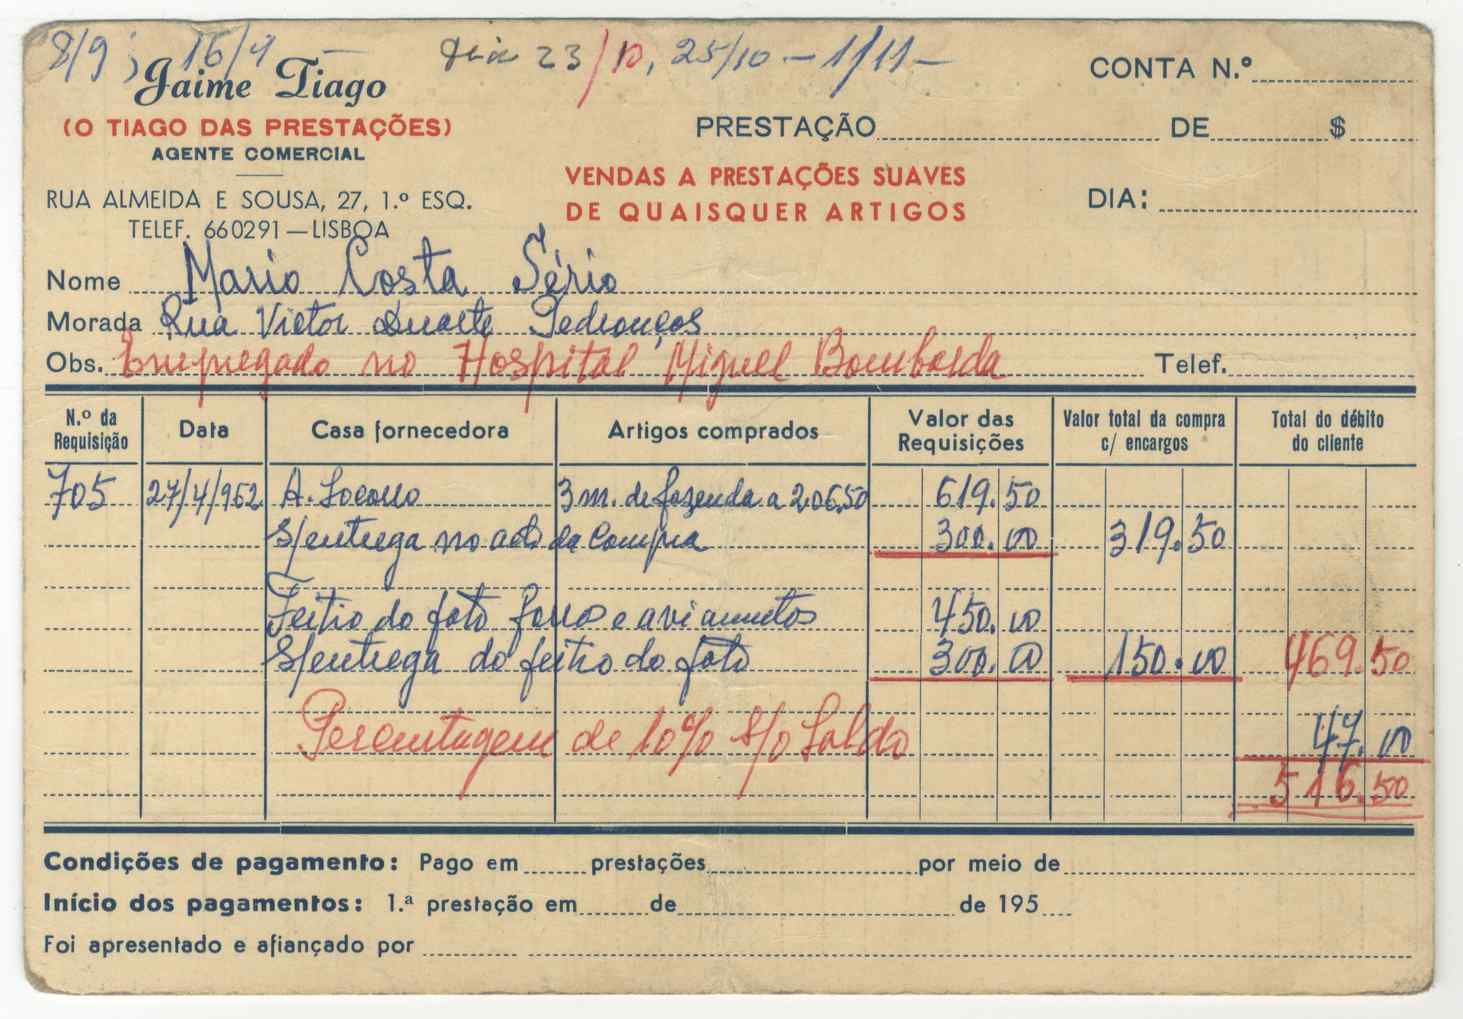 8/9, 16/9 — dia 23/10, 25/10 — 1/11 —
Jaime Tiago
(O TIAGO DAS PRESTAÇÕES)
AGENTE COMERCIAL
RUA ALMEIDA E SOUSA, 27, 1.º ESQ.
TELEF. 660291 — LISBOA
CONTA N.º
PRESTAÇÃO DE $
VENDAS A PRESTAÇÕES SUAVES
DE QUAISQUER ARTIGOS
DIA:
Nome Mario Costa Sério
Morada Rua Victor Duarte Pedrouços
Obs. Empregado no Hospital Miguel Bombarda Telef.
N.º da Requisição Data Casa fornecedora Artigos comprados Valor das Requisições Valor total da compra c/ encargos Total do débito do cliente
705 27/4/962 A. Socorro 3 m. de fazenda a 206,50 619.50
S/entrega no acto da Compra 300.00 319.50
Feitio do fato forro e aviamentos 450.00
S/entrega do feitio do fato 300.00 150.00 469.50
Percentagem de 10% S/o Saldo 47.00
516.50
Condições de pagamento: Pago em prestações por meio de
Início dos pagamentos: 1.ª prestação em de de 195
Foi apresentado e afiançado por